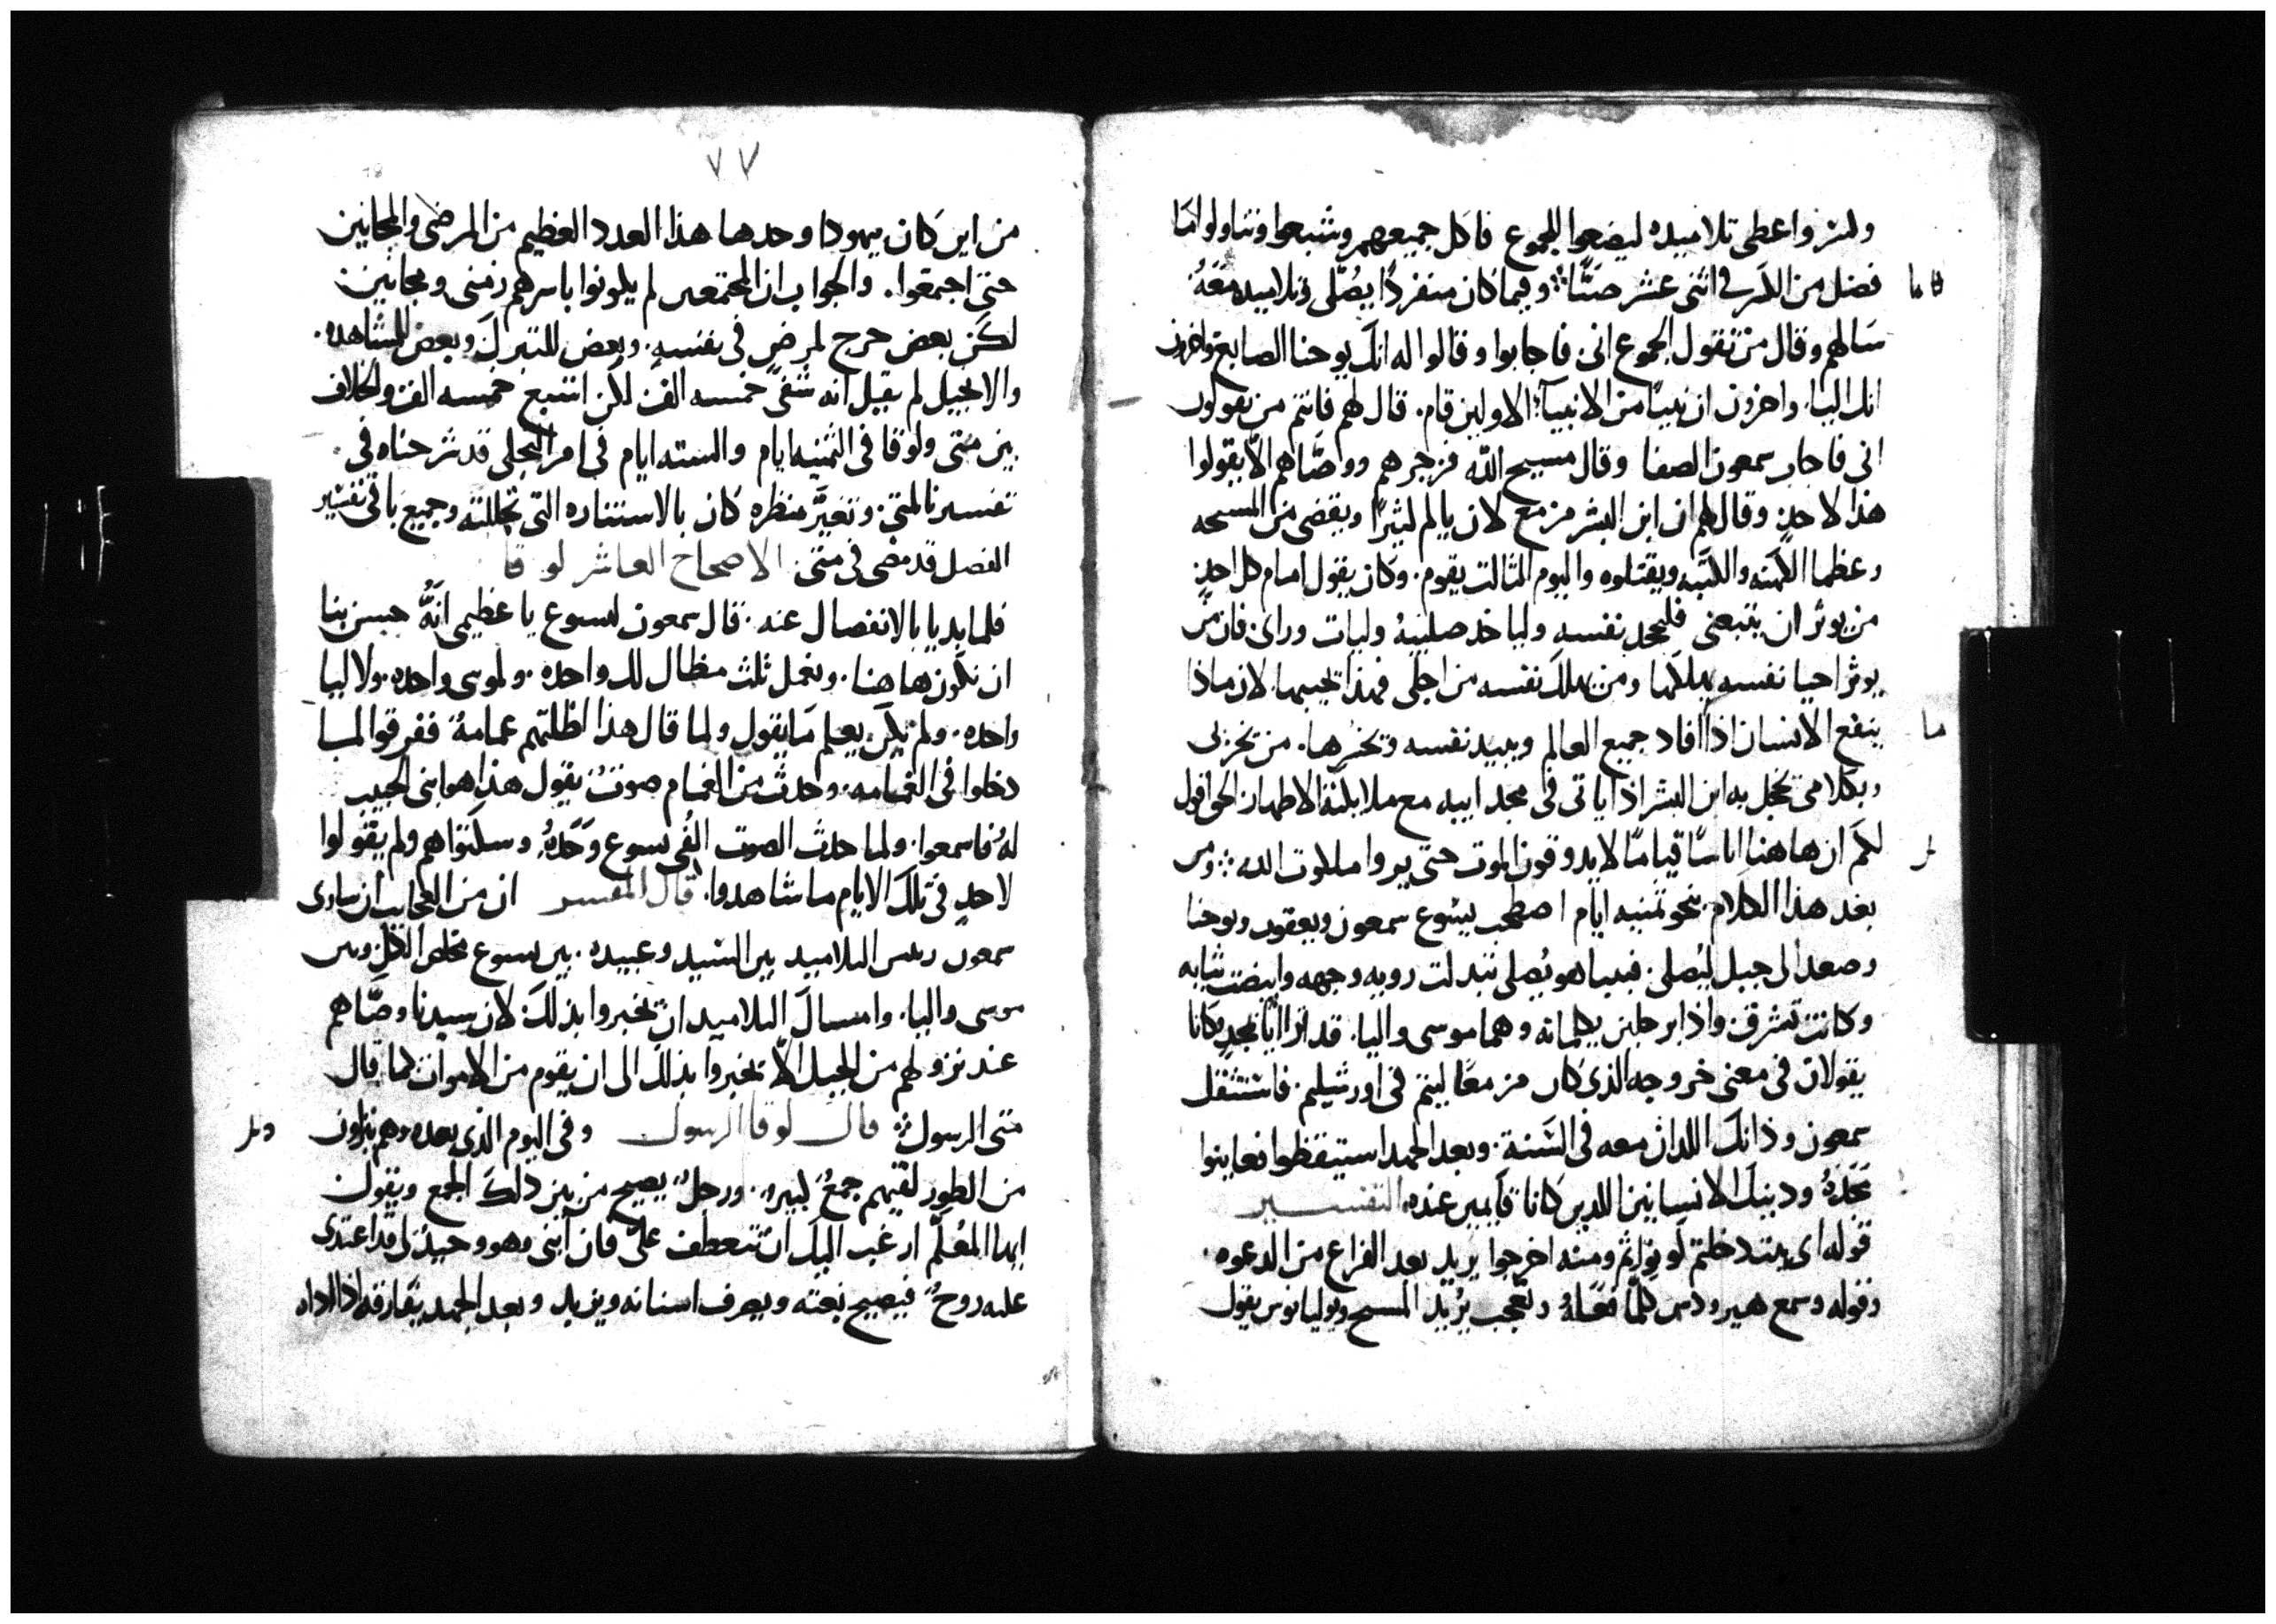 وكسر واعطى تلاميذه ليضعوا للجموع فاكل جميعهم وشبعوا وتناولوا ما
فضل من الكسر في اثنى عشر صنًا وفيما كان منفردًا يُصلّى وتلاميده معَهُ
سَالهم وقال من تقول الجموع انى فاجابوا وقالوا له انك يوحنا الصابغ واخرون
انك اليا. واخرون ان نبيًا من الانبيآء الاولين قام. قال لهم فانتم من تقولون
انى فاجاب سمعون الصفا وقال مسيح الله فزجرهم ووصّاهم الّا يقولوا
هذا لاحدٍ وقال لهم ان ابن البشر مزمع لان يالم كثيرًا ويقضى من المسحه
وعظما الكهنه والكتبه ويقتلوه واليوم الثالث يقوم. وكان يقول امام كل احدٍ
من يوثر ان يتبعنى فليجحد نفسه ولياخد صليبهُ وليات وراى. فان من
يوثر احيا نفسه يهلكها ومن يهلك نفسه من اجلى فهذا يحييها. لان ماذا
ينفع الانسان اذا افاد جميع العالم ويبيد نفسه وتخسرها. من تخزى بى
وبكلامى تخجل به ابن البشر اذا ياتى فى مجد ابيه مع ملايكته الاطهار الحق اقول
لكم ان هاهنا اناسًا قيامًا لا يدوقون الموت حتى يروا ملكوت الله ومن
بعد هذا الكلام بنحو ثمنيه ايام اصطحب يسوع سمعون ويعقوب ويوحنا
وصعد الى جبل ليُصلى. فبينا هو يُصلى تبدلت رويه وجهه وابيضت ثيابه
وكانت تشرق. واذا برجلين يكلمانه وهما موسى واليا. قد تراايا بمجدٍ كانا
يقولان فى معنى خروجه الذى كان مزمعًا ليتم فى اورشليم. فاستثقل
سمعون وذانك اللدان معه فى السَنة. وبعد الجهد استيقظوا فعاينوا
مجدهُ ودينك الانسانين اللدين كانا قايمين عنده التفسير
قوله اى بيت دخلتم كونوا ثم ومنه اخرجوا يريد بعد الفراغ من الدعوه.
وقوله وسمع هيرودس كلّما فعَلهُ وتعجب يُريد المسيح ويوليانوس يقول
٧٧
من اين كان يهودا وحدها هذا العدد العظيم من المرضى والمجانين
حتى اجتمعوا. والجواب ان المجتمعين لم يكونوا باسرهم زمنى ومجانين
لكن بعض خرج لمرضٍ فى نفسه. وبعض للتبرك وبعض للمشاهده.
والانجيل لم يقيل انه شفى خمسه الف لكن اشبع خمسه الف والخلاف
بين متى ولوقا فى الثمنيه ايام والسته ايام فى امر التجلى قد شرحناه فى
تفسيرنا لمتى. وتغيَّر منظره كان بالاستناره التى تجللته وجميع باقى تفسير
الفصل قد مضى فى متى. الاصحاح العاشر لوقا
فلما بديا بالانفصال عنه. قال سمعون ليسوع يا عظيمى انهُّ حسن بنا
ان نكون هاهنا. ونعمل ثلث مظال لك واحده. ولموسى واحده. ولاليا
واحده. ولم يكن يعلم مَا يقول ولما قال هذا اظلتهم غمامةُ ففرقوا لما
دخلوا فى الغمامه. وحدث من الغمام صوتٌ يقول هذا هو ابنى الحبيب
لهُ فاسمعوا. ولما حدث الصوت الُفى يسوع وَحَدهُ. وسكتوا هم ولم يقولوا
لاحدٍ فى تلك الايام ما شاهدوا. قال المفسر ان من العجايب ان ساوى
سمعون رييس التلاميد بين السيد وعبيده. بين يسوع مخلص الكل وبين
موسى واليا. وامساك التلاميد ان يخبروا بذلك لان سيدنا وصّاهم
عند نزولهم من الجبل الّا يخبروا بذلك الى ان يقوم من الاموات كما قال
متى الرسول قال لوقا الرسول وفى اليوم الذى بعده وهم نازلون
من الطور لقيهم جمعُ كبير. ورجلٌ يصيح من بين ذلك الجمع ويقول
ايها المُعلّم ارغب اليك ان تتعطف علىّ فان ابنى وهو وحيدٌ لى قد اعتدى
عليه روحٌ فيصيح بغته ويصرف اسنانه ويزبد وبعد الجهد يفارقه اذا اذاه